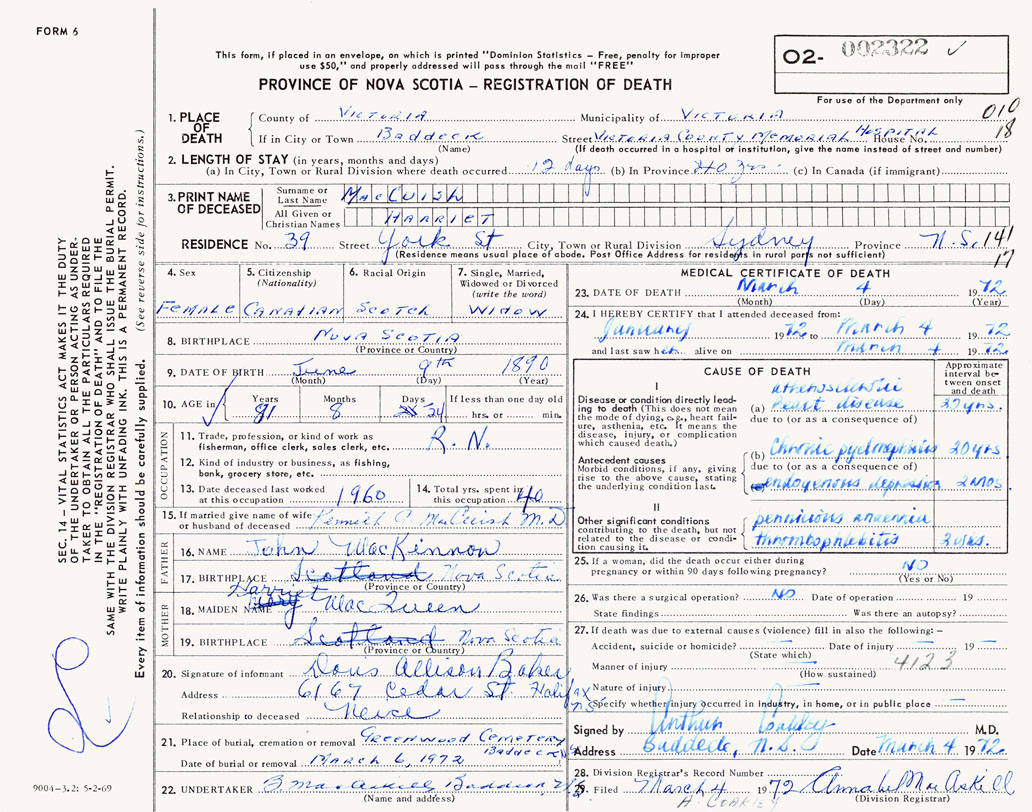 FORM 6
This form, if placed in an envelope, on which is printed "Dominion Statistics – Free, penalty for improper
use $50," and properly addressed will pass through the mail "FREE"
PROVINCE OF NOVA SCOTIA – REGISTRATION OF DEATH
O2- 002322 ✓
For use of the Department only
010
18
1. PLACE OF DEATH
County of Victoria Municipality of Victoria
If in City or Town Baddeck Street Victoria County Memorial Hospital House No.
(Name) (If death occurred in a hospital or institution, give the name instead of street and number)
2. LENGTH OF STAY (in years, months and days)
(a) In City, Town or Rural Division where death occurred 12 days (b) In Province 40 yrs. (c) In Canada (if immigrant)
3. PRINT NAME OF DECEASED
Surname or Last Name MacCuish
All Given or Christian Names HARRIET
RESIDENCE No. 39 Street York St City, Town or Rural Division Sydney Province N.S. 141
(Residence means usual place of abode. Post Office Address for residents in rural parts not sufficient)
17
4. Sex
Female
5. Citizenship
(Nationality)
Canadian
6. Racial Origin
Scotch
7. Single, Married,
Widowed or Divorced
(write the word)
Widow
8. BIRTHPLACE Nova Scotia
(Province or Country)
9. DATE OF BIRTH June 9th 1890
(Month) (Day) (Year)
10. AGE in Years Months Days If less than one day old
81 8 24 hrs. or min.
OCCUPATION
11. Trade, profession, or kind of work as
fisherman, office clerk, sales clerk, etc. R. N.
12. Kind of industry or business, as fishing,
bank, grocery store, etc.
13. Date deceased last worked
at this occupation 1960
14. Total yrs. spent in
this occupation 40
15. If married give name of wife
or husband of deceased Kenneth A MacCuish M.D
FATHER
16. NAME John MacKinnon
17. BIRTHPLACE Scotland Nova Scotia
(Province or Country)
MOTHER
18. MAIDEN NAME Harriet Mary MacQueen
19. BIRTHPLACE Scotland Nova Scotia
(Province or Country)
20. Signature of informant Doris Allison Baker
Address 6167 Cedar St. Halifax N.S
Relationship to deceased Neice
21. Place of burial, cremation or removal Greenwood Cemetery Baddeck
Date of burial or removal March 6, 1972
22. UNDERTAKER MacAskill Baddeck, N.S
(Name and address)
MEDICAL CERTIFICATE OF DEATH
23. DATE OF DEATH March 4 1972
(Month) (Day) (Year)
24. I HEREBY CERTIFY that I attended deceased from:
January 1972 to March 4 1972
and last saw her alive on March 4 1972
CAUSE OF DEATH
Approximate
interval be-
tween onset
and death
I
Disease or condition directly lead-
ing to death (This does not mean
the mode of dying, e.g., heart fail-
ure, asthenia, etc. It means the
disease, injury, or complication
which caused death.)
atherosclerotic
(a) heart disease 20 yrs.
due to (or as a consequence of)
Antecedent causes
Morbid conditions, if any, giving
rise to the above cause, stating
the underlying condition last.
(b) Chronic pyelonephritis 20 yrs
due to (or as a consequence of)
(c) endogenous depression 2 mos.
II
Other significant conditions
contributing to the death, but not
related to the disease or condi-
tion causing it.
pernicious anaemia
thrombophlebitis 2 wks.
25. If a woman, did the death occur either during
pregnancy or within 90 days following pregnancy? NO
(Yes or No)
26. Was there a surgical operation? NO Date of operation 19
State findings Was there an autopsy?
27. If death was due to external causes (violence) fill in also the following: –
Accident, suicide or homicide? Date of injury 19
(State which)
Manner of injury 4123
(How sustained)
Nature of injury
Specify whether injury occurred in industry, in home, or in public place
Signed by Arthur Coakley M.D.
Address Baddeck, N.S. Date March 4 1972
28. Division Registrar's Record Number
29. Filed March 4 1972 Annabel MacAskill
(Division Registrar)
A. COAKLEY
SEC. 14 – VITAL STATISTICS ACT MAKES IT THE DUTY
OF THE UNDERTAKER OR PERSON ACTING AS UNDER-
TAKER TO OBTAIN ALL THE PARTICULARS REQUIRED
IN THE "REGISTRATION OF DEATH" AND FILE THE
SAME WITH THE DIVISION REGISTRAR WHO SHALL ISSUE THE BURIAL PERMIT.
WRITE PLAINLY WITH UNFADING INK. THIS IS A PERMANENT RECORD.
Every item of information should be carefully supplied. (See reverse side for instructions.)
9004-3.2: 5-2-69